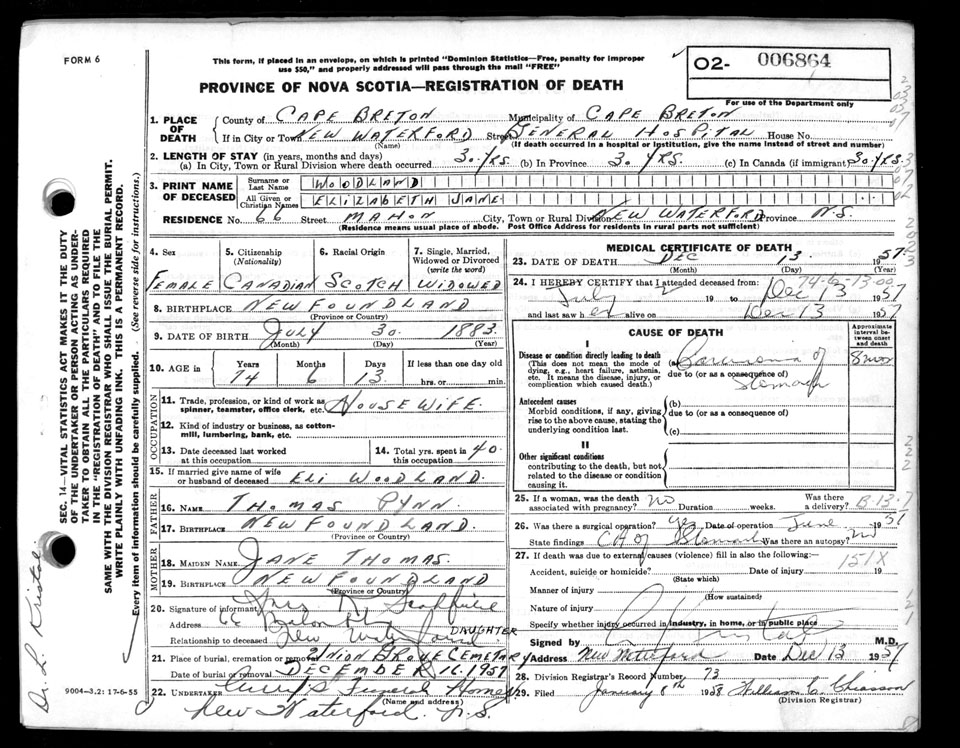 FORM 6
This form, if placed in an envelope, on which is printed "Dominion Statistics—Free, penalty for improper
use $50," and properly addressed will pass through the mail "FREE"
O2- 006864
For use of the Department only
PROVINCE OF NOVA SCOTIA—REGISTRATION OF DEATH
1. PLACE OF DEATH County of CAPE BRETON Municipality of CAPE BRETON
If in City or Town NEW WATERFORD Street GENERAL HOSPITAL House No.
(Name) (If death occurred in a hospital or institution, give the name instead of street and number)
2. LENGTH OF STAY (in years, months and days)
(a) In City, Town or Rural Division where death occurred 30 YRS. (b) In Province 30 YRS. (c) In Canada (if immigrant) 30 YRS.
3. PRINT NAME OF DECEASED Surname or Last Name WOODLAND
All Given or Christian Names ELIZABETH JANE
RESIDENCE No. 66 Street MAHON City, Town or Rural Division NEW WATERFORD Province N.S.
(Residence means usual place of abode. Post Office Address for residents in rural parts not sufficient)
4. Sex 5. Citizenship (Nationality) 6. Racial Origin 7. Single, Married, Widowed or Divorced (write the word)
FEMALE CANADIAN SCOTCH WIDOWED
8. BIRTHPLACE NEWFOUNDLAND
(Province or Country)
9. DATE OF BIRTH JULY 30. 1883.
(Month) (Day) (Year)
10. AGE in Years Months Days If less than one day old
74 6 13 hrs. or min.
OCCUPATION
11. Trade, profession, or kind of work as spinner, teamster, office clerk, etc. HOUSEWIFE.
12. Kind of industry or business, as cotton-mill, lumbering, bank, etc.
13. Date deceased last worked at this occupation 14. Total yrs. spent in this occupation 40.
15. If married give name of wife or husband of deceased ELI WOODLAND.
FATHER
16. NAME THOMAS PYNN.
17. BIRTHPLACE NEWFOUNDLAND.
(Province or Country)
MOTHER
18. MAIDEN NAME JANE THOMAS.
19. BIRTHPLACE NEWFOUNDLAND
(Province or Country)
20. Signature of informant Mrs R
Address 66
New Waterford
Relationship to deceased DAUGHTER
21. Place of burial, cremation or removal UNION GROVE CEMETARY
Date of burial or removal DECEMBER 16. 1957
22. UNDERTAKER Funeral Home
(Name and address)
New Waterford. N.S.
MEDICAL CERTIFICATE OF DEATH
23. DATE OF DEATH DEC 13. 1957
(Month) (Day) (Year)
24. I HEREBY CERTIFY that I attended deceased from:
74-6-13-00
July 2 19 to Dec 13 1957
and last saw her alive on Dec 13 1957
CAUSE OF DEATH Approximate interval between onset and death
I
Disease or condition directly leading to death (a) Carcinoma of 8 mos
(This does not mean the mode of dying, e.g., heart failure, asthenia, etc. It means the disease, injury, or complication which caused death.)
due to (or as a consequence of) Stomach
Antecedent causes
Morbid conditions, if any, giving rise to the above cause, stating the underlying condition last.
(b)
due to (or as a consequence of)
(c)
II
Other significant conditions
contributing to the death, but not related to the disease or condition causing it.
25. If a woman, was the death associated with pregnancy? no Duration weeks. Was there a delivery? B-13-7
26. Was there a surgical operation? yes Date of operation June 1957
State findings CA of Stomach Was there an autopsy? no
27. If death was due to external causes (violence) fill in also the following:—
151X
Accident, suicide or homicide? Date of injury 19
(State which)
Manner of injury
(How sustained)
Nature of injury
Specify whether injury occurred in industry, in home, or in public place
Signed by M.D.
Address New Waterford Date Dec 13 1957
28. Division Registrar's Record Number 73
29. Filed January 8th 1958 William C. Chiasson
(Division Registrar)
SEC. 14—VITAL STATISTICS ACT MAKES IT THE DUTY
OF THE UNDERTAKER OR PERSON ACTING AS UNDER-
TAKER TO OBTAIN ALL THE PARTICULARS REQUIRED
IN THE "REGISTRATION OF DEATH" AND TO FILE THE
SAME WITH THE DIVISION REGISTRAR WHO SHALL ISSUE THE BURIAL PERMIT.
WRITE PLAINLY WITH UNFADING INK. THIS IS A PERMANENT RECORD.
Every item of information should be carefully supplied. (See reverse side for instructions.)
Dr. L.
9004—3.2: 17-6-55